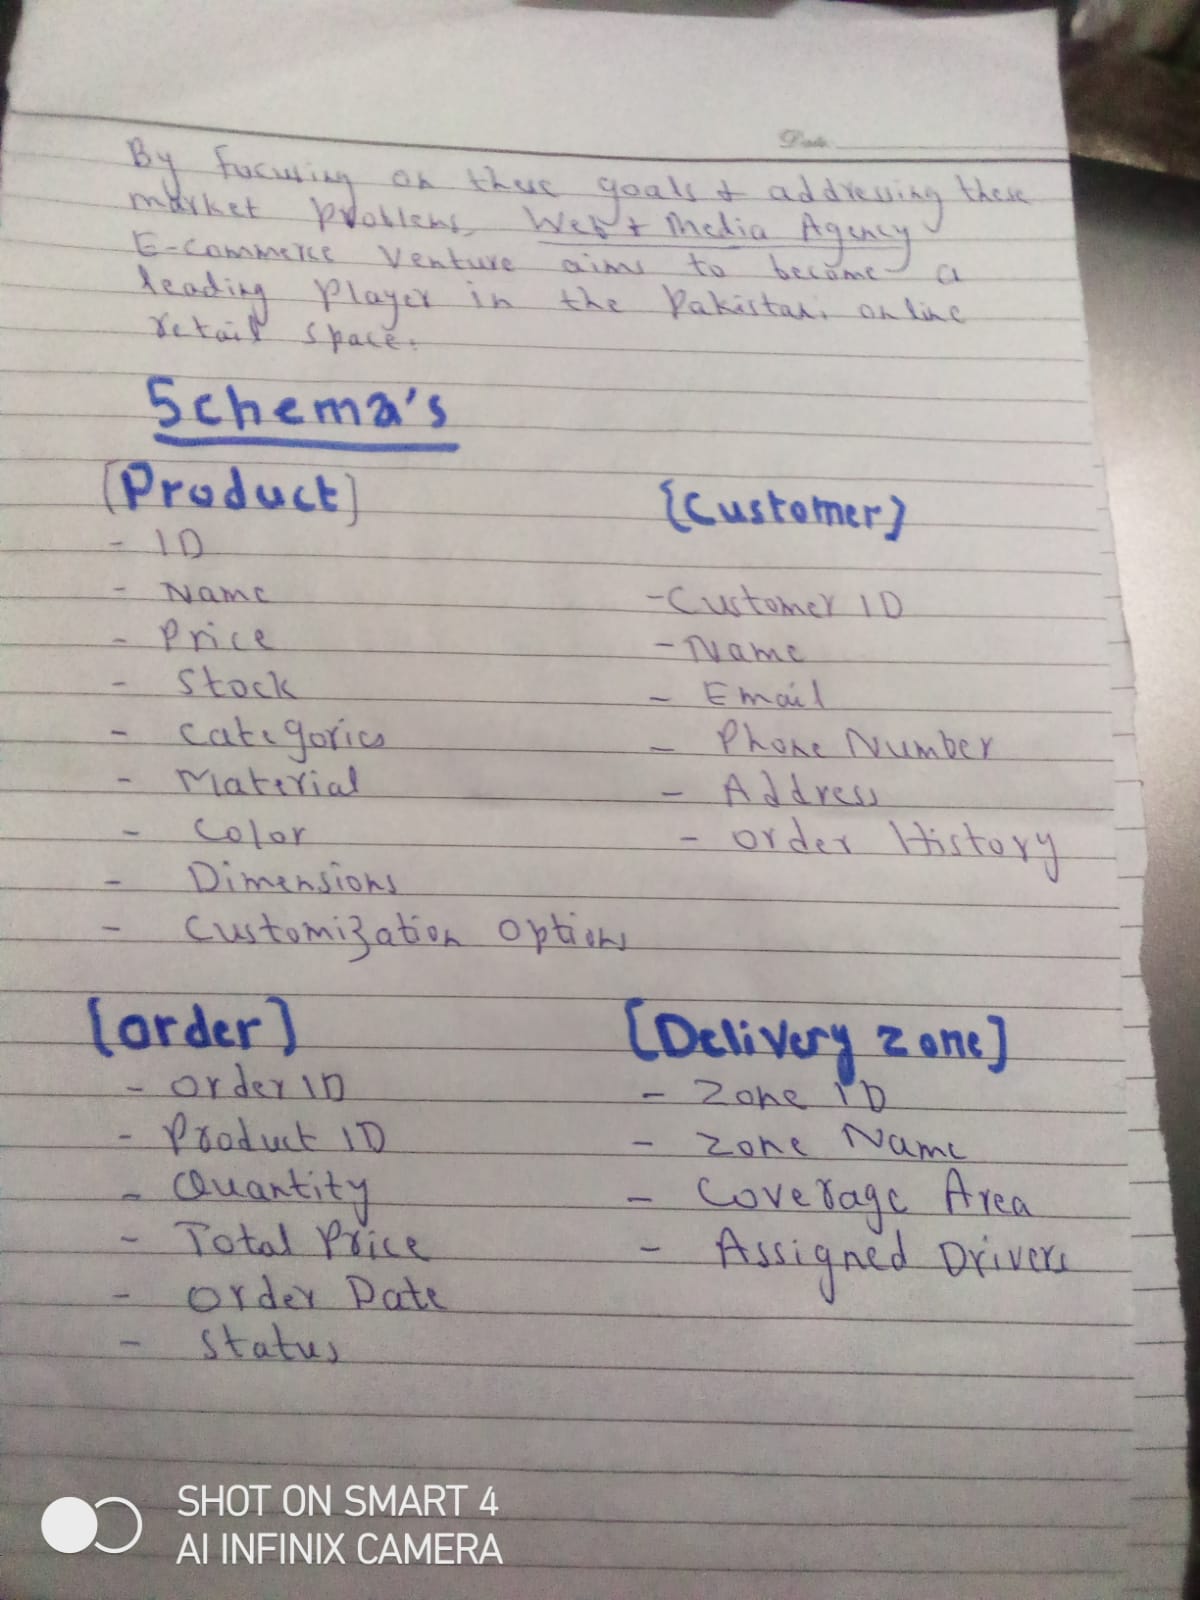 Date
By focusing on these goals & addressing these
market problems, Web & Media Agency
E-commerce Venture aims to become a
leading Player in the Pakistani online
retail space.
Schema's
[Product]
- ID
- Name
- Price
- Stock
- Categories
- Material
- Color
- Dimensions
- Customization Options
{Customer}
- Customer ID
- Name
- Email
- Phone Number
- Address
- Order History
[Order]
- Order ID
- Product ID
- Quantity
- Total Price
- Order Date
- Status
[Delivery Zone]
- Zone ID
- Zone Name
- Coverage Area
- Assigned Drivers
SHOT ON SMART 4
AI INFINIX CAMERA